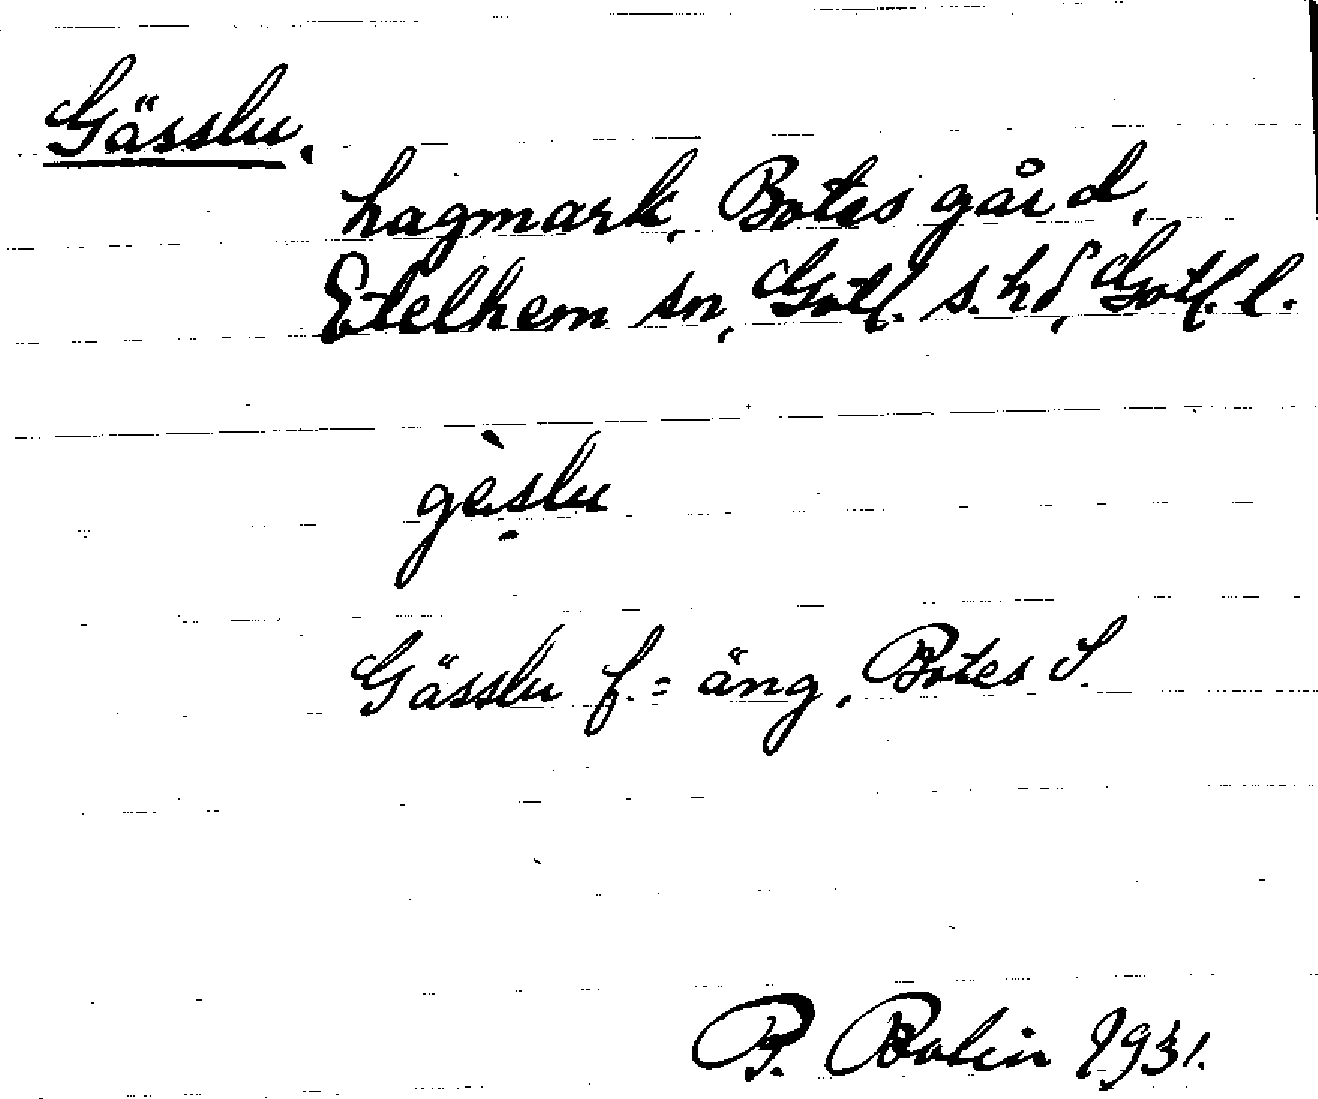 Gässlu.
hagmark, Botes gård,
Etelhem sn, Gotl. s. hd, Gotl. l.
gèṣlu
Gässlu f. = äng, Botes S.
P. Bolin 1931.